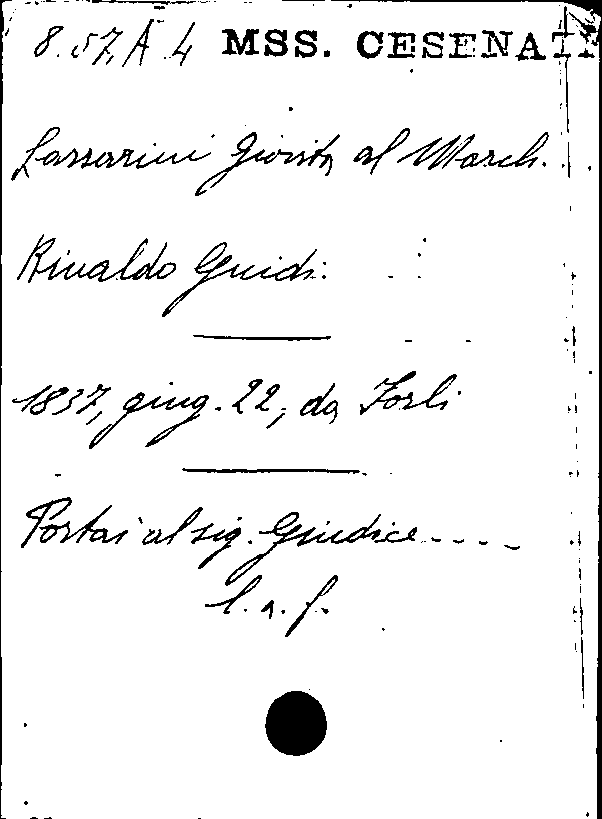 8.57.A 4 MSS. CESENATI
Lazzarini Giovita al March.
Rinaldo Guidi.
1837, giug. 22, da Forlì
Portai al sig. Giudice....
l. a. f.